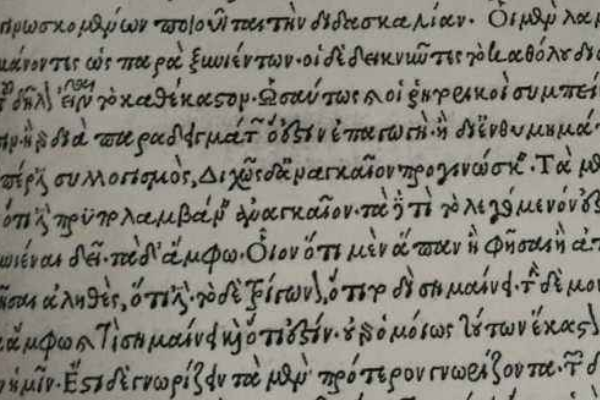 γινωσκομένων ποιοῦνται τὴν διδασκαλίαν. Οἱ μὲν λαμ
βάνοντες ὡς παρὰ ξυνιέντων· οἱ δὲ δεικνῦντες τὸ καθόλου δι
δῆλον εἶναι τὸ καθέκαστον. Ὡσαύτως καὶ οἱ ῥητορικοὶ συμπεί
ἢ γὰρ διὰ παραδειγμάτων ὅ ἐστιν ἐπαγωγὴ· ἢ δι' ἐνθυμημά
ὅπερ ἐστὶ συλλογισμός, Διχῶς δ' ἀναγκαῖον προγινώσκειν. Τὰ μὲν
ὅτι ἐστὶ προϋπολαμβάνειν ἀναγκαῖον. τὰ δὲ τί τὸ λεγόμενόν ἐστι
ξυνιέναι δεῖ. τὰ δ' ἄμφω. Οἷον ὅτι μὲν ἅπαν ἢ φῆσαι ἢ ἀπ
φῆσαι ἀληθές, ὅτι ἐστὶ. τὸ δὲ τρίγωνον, ὅτι τοδὶ σημαίνει. τὴν δὲ μον
ἄμφω καὶ τί σημαίνει καὶ ὅτι ἐστίν. οὐ γὰρ ὁμοίως τούτων ἕκαστον
ἡμῖν. Ἔστι δὲ γνωρίζειν τὰ μὲν πρότερον γνωρίζοντα. τῶν δ